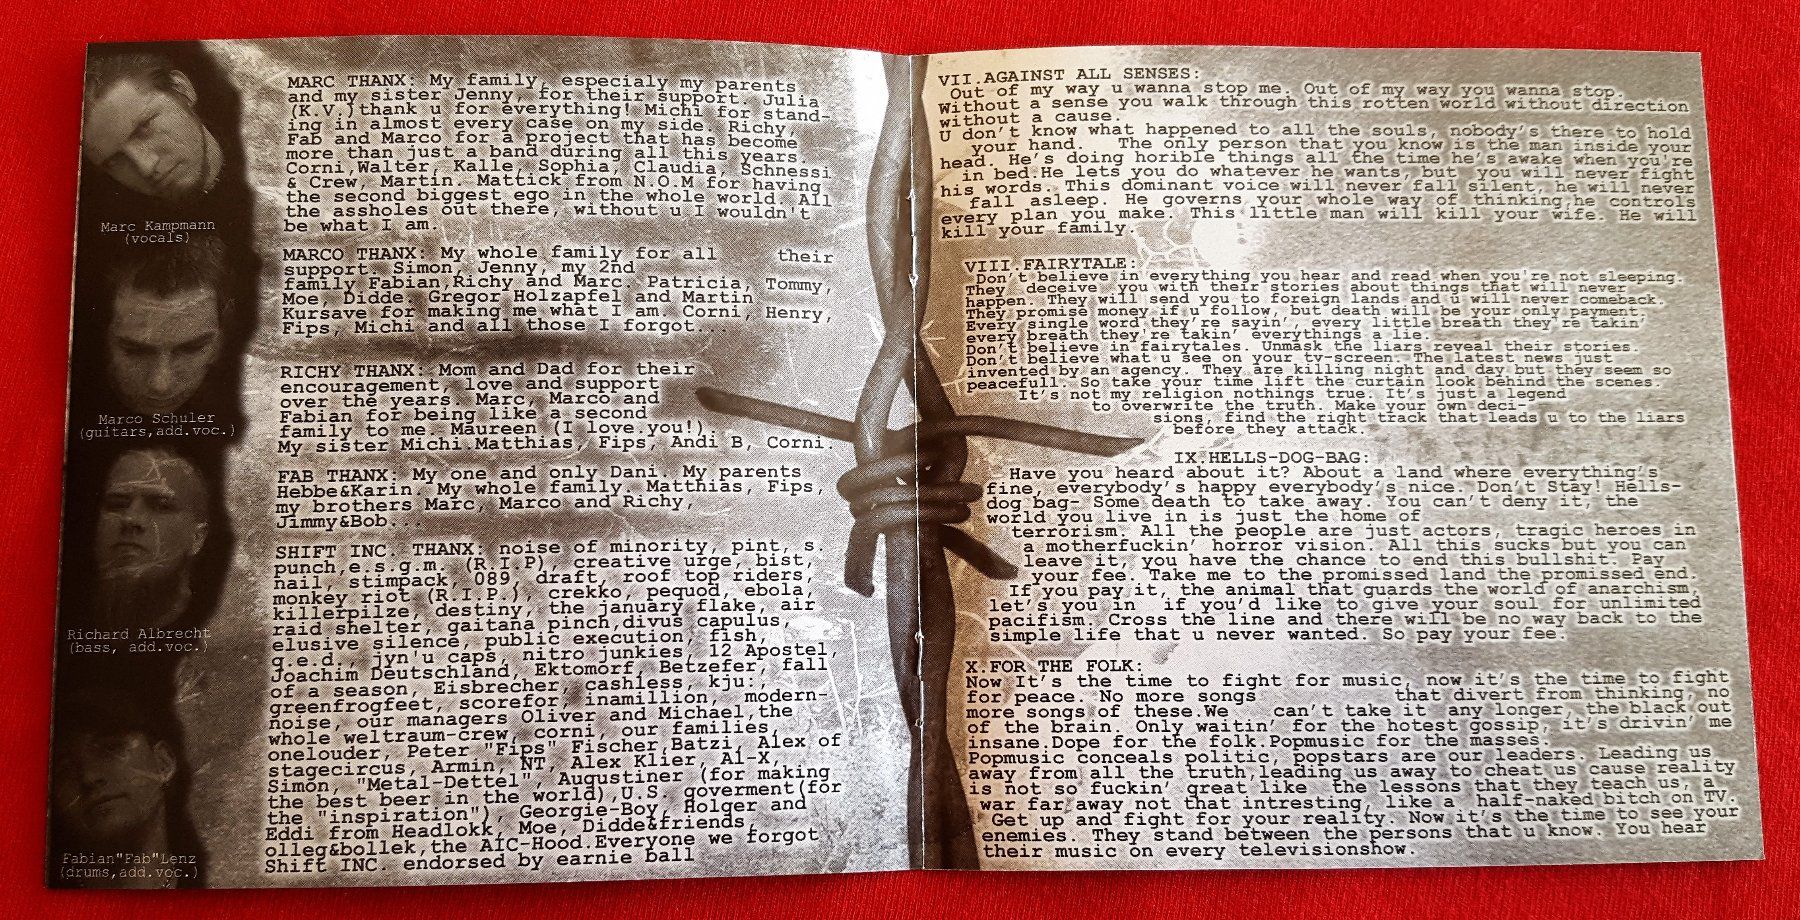 MARC THANX: My family, especialy my parents
and my sister Jenny, for their support. Julia
(K.V.)thank u for everything! Michi for stand-
ing in almost every case on my side. Richy,
Fab and Marco for a project that has become
more than just a band during all this years.
Corni,Walter, Kalle, Sophia, Claudia, Schnessi
& Crew, Martin. Mattick from N.O.M for having
the second biggest ego in the whole world. All
the assholes out there, without u I wouldn't
be what I am.
Marc Kampmann
(vocals)
MARCO THANX: My whole family for all their
support. Simon, Jenny, my 2nd
family Fabian,Richy and Marc. Patricia, Tommy,
Moe, Didde. Gregor Holzapfel and Martin
Kursave for making me what I am. Corni, Henry,
Fips, Michi and all those I forgot...
Marco Schuler
(guitars,add.voc.)
RICHY THANX: Mom and Dad for their
encouragement, love and support
over the years. Marc, Marco and
Fabian for being like a second
family to me. Maureen (I love you!).
My sister Michi.Matthias, Fips, Andi B, Corni.
FAB THANX: My one and only Dani. My parents
Hebbe&Karin. My whole family. Matthias, Fips,
my brothers Marc, Marco and Richy,
Jimmy&Bob...
Richard Albrecht
(bass, add.voc.)
SHIFT INC. THANX: noise of minority, pint, s.
punch,e.s.g.m. (R.I.P), creative urge, bist,
nail, stimpack, 089, draft, roof top riders,
monkey riot (R.I.P.), crekko, pequod, ebola,
killerpilze, destiny, the january flake, air
raid shelter, gaitana pinch,divus capulus,
elusive silence, public execution, fish,
q.e.d., jyn'u caps, nitro junkies, 12 Apostel,
Joachim Deutschland, Ektomorf, Betzefer, fall
of a season, Eisbrecher, cashless, kju:,
greenfrogfeet, scorefor, inamillion, modern-
noise, our managers Oliver and Michael,the
whole weltraum-crew, corni, our families,
onelouder, Peter "Fips" Fischer,Batzi, Alex of
stagecircus, Armin, NT, Alex Klier, Al-X,
Simon, "Metal-Dettel", Augustiner (for making
the best beer in the world),U.S. goverment(for
the "inspiration"), Georgie-Boy, Holger and
Eddi from Headlokk, Moe, Didde&friends,
olleg&bollek,the AIC-Hood.Everyone we forgot
Shift INC. endorsed by earnie ball
Fabian"Fab"Lenz
(drums,add.voc.)
VII.AGAINST ALL SENSES:
Out of my way u wanna stop me. Out of my way you wanna stop.
Without a sense you walk through this rotten world without direction
without a cause.
U don't know what happened to all the souls, nobody's there to hold
your hand. The only person that you know is the man inside your
head. He's doing horrible things all the time he's awake when you're
in bed.He lets you do whatever he wants, but you will never fight
his words. This dominant voice will never fall silent, he will never
fall asleep. He governs your whole way of thinking,he controls
every plan you make. This little man will kill your wife. He will
kill your family.
VIII FAIRYTALE:
Don't believe in everything you hear and read when you're not sleeping.
They deceive you with their stories about things that will never
happen. They will send you to foreign lands and u will never comeback.
They promise money if u follow, but death will be your only payment.
Every single word they're sayin', every little breath they're takin'
every breath they're takin' everythings a lie.
Don't believe in fairytales. Unmask the liars reveal their stories.
Don't believe what u see on your tv-screen. The latest news just
invented by an agency. They are killing night and day but they seem so
peacefull. So take your time lift the curtain look behind the scenes.
It's not my religion nothings true. It's just a legend
to overwrite the truth. Make your own deci-
sions, find the right track that leads u to the liars
before they attack.
IX.HELLS-DOG-BAG:
Have you heard about it? About a land where everything's
fine, everybody's happy everybody's nice. Don't Stay! Hells-
dog bag- Some death to take away. You can't deny it, the
world you live in is just the home of
terrorism. All the people are just actors, tragic heroes in
a motherfuckin' horror vision. All this sucks but you can
leave it, you have the chance to end this bullshit. Pay
your fee. Take me to the promissed land the promissed end.
If you pay it, the animal that guards the world of anarchism,
let's you in if you'd like to give your soul for unlimited
pacifism. Cross the line and there will be no way back to the
simple life that u never wanted. So pay your fee.
X.FOR THE FOLK:
Now It's the time to fight for music, now it's the time to fight
for peace. No more songs that divert from thinking, no
more songs of these.We can't take it any longer, the black out
of the brain. Only waitin' for the hotest gossip, it's drivin' me
insane.Dope for the folk.Popmusic for the masses.
Popmusic conceals politic, popstars are our leaders. Leading us
away from all the truth,leading us away to cheat us cause reality
is not so fuckin' great like the lessons that they teach us, a
war far away not that intresting, like a half-naked bitch on TV.
Get up and fight for your reality. Now it's the time to see your
enemies. They stand between the persons that u know. You hear
their music on every televisionshow.